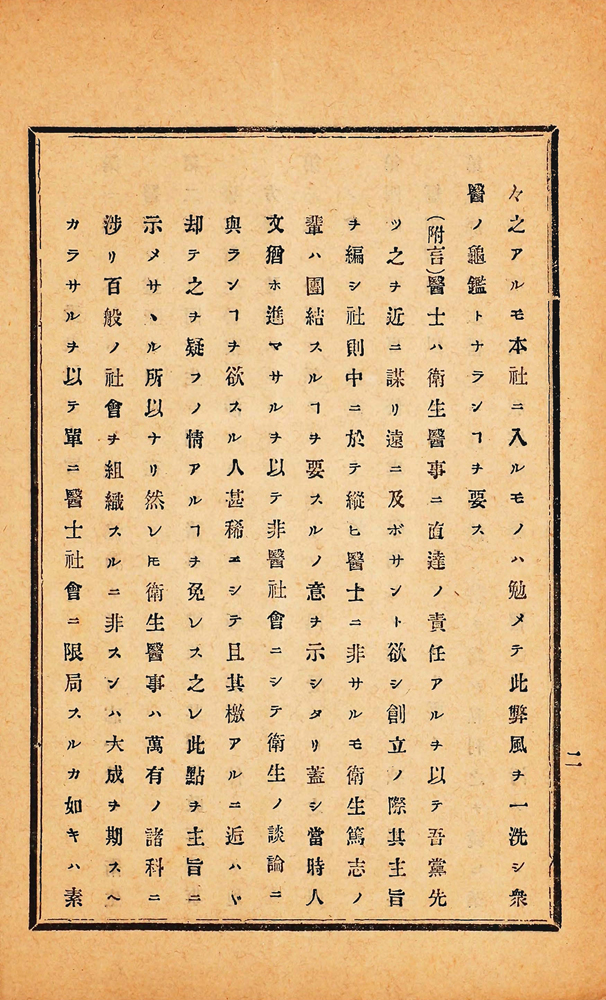 々之アルモ本社ニ入ルモノハ勉メテ此弊風ヲ一洗シ衆
醫ノ龜鑑トナランヿヲ要ス
(附言)醫士ハ衛生醫事ニ直達ノ責任アルヲ以テ吾黨先
ツ之ヲ近ニ謀リ遠ニ及ボサント欲シ創立ノ際其主旨
ヲ編シ社則中ニ於テ縱ヒ醫士ニ非サルモ衛生篤志ノ
輩ハ團結スルヿヲ要スルノ意ヲ示シタリ蓋シ當時人
文猶ホ進マサルヲ以テ非醫社會ニシテ衛生ノ談論ニ
與ランヿヲ欲スル人甚稀ニシテ且其檄アルニ遁ハヾ
却テ之ヲ疑フノ情アルヿヲ免レス之レ此點ヲ主旨ニ
示メサヽル所以ナリ然レ𪜈衛生醫事ハ萬有ノ諸科ニ
涉リ百般ノ社會ヲ組織スルニ非スンハ大成ヲ期スヘ
カラサルヲ以テ單ニ醫士社會ニ限局スルカ如キハ素
二